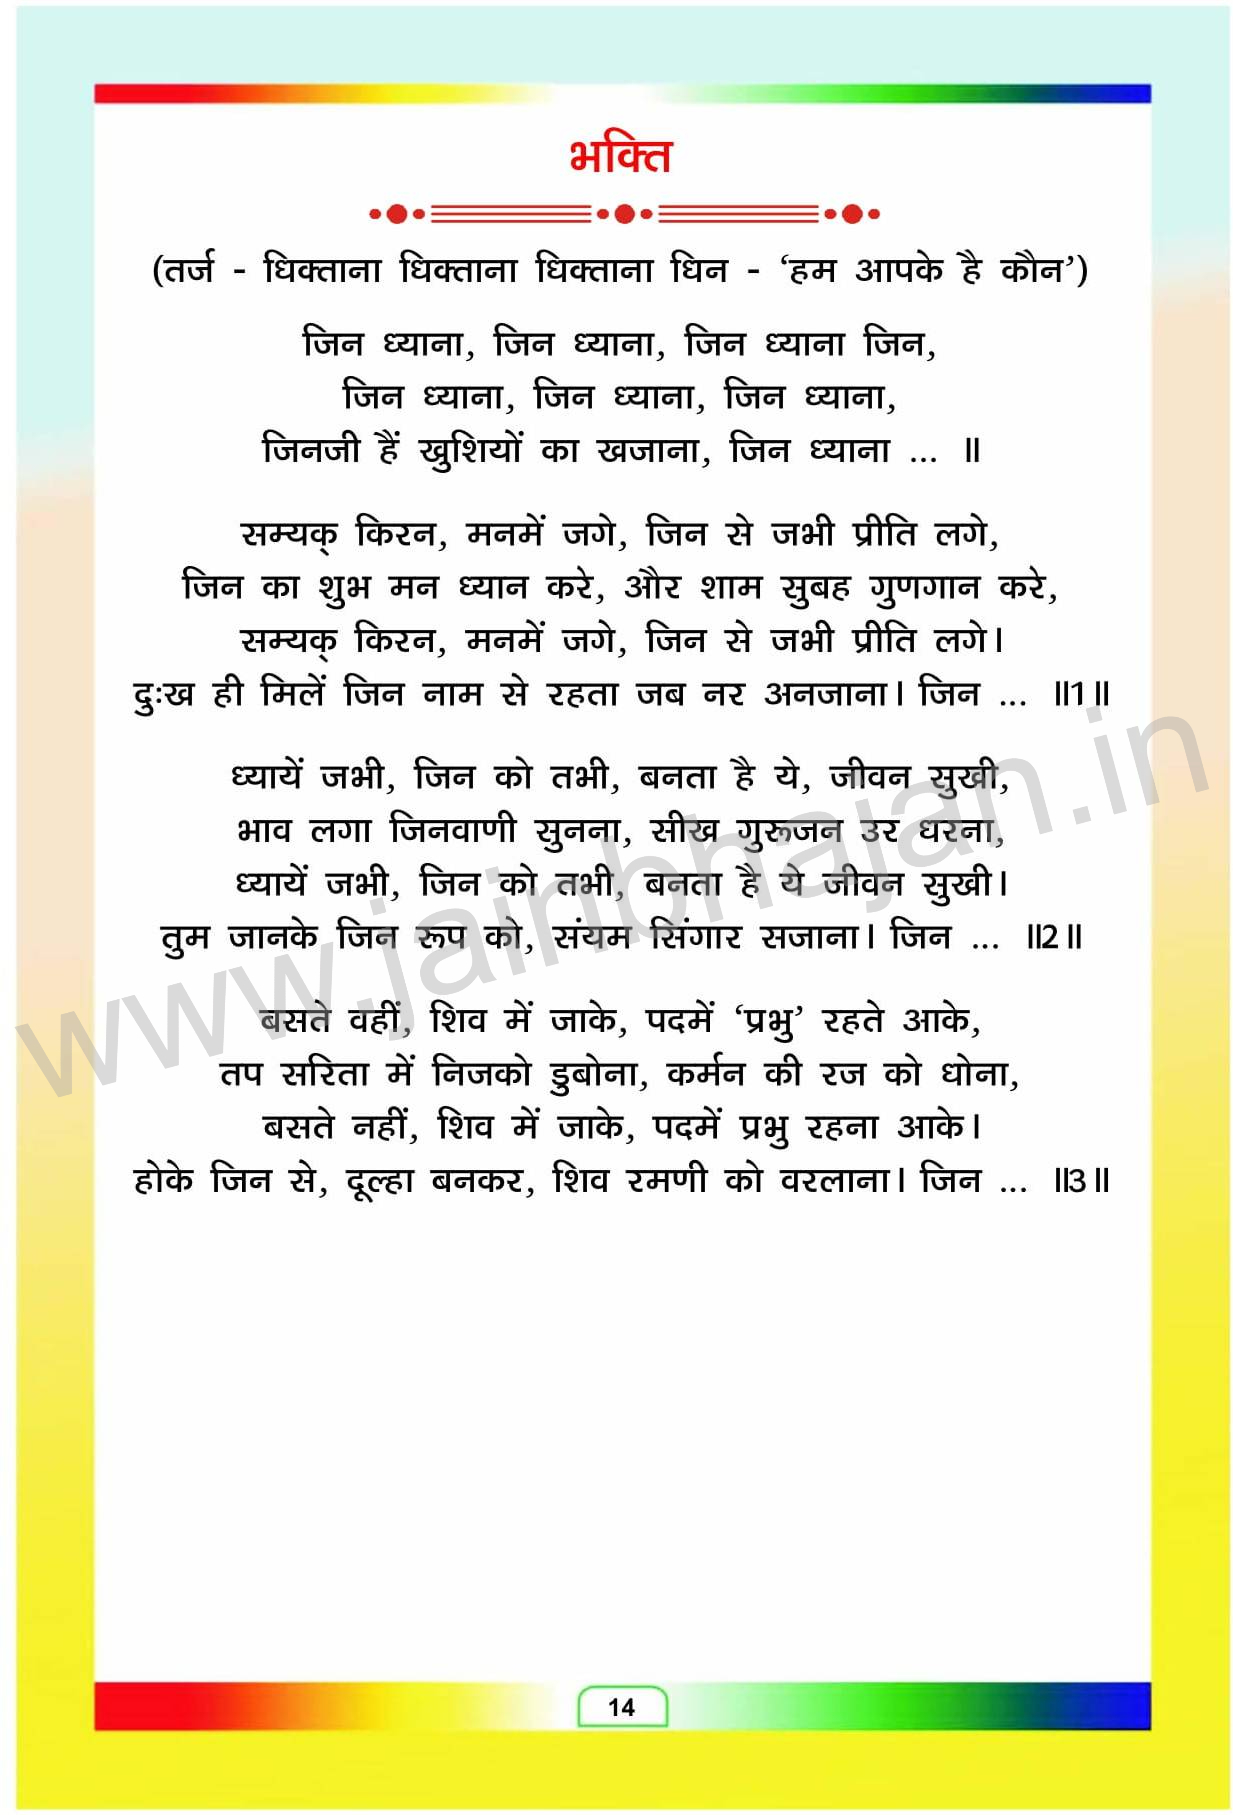 भक्ति
(तर्ज - धिक्ताना धिक्ताना धिक्ताना धिन - ‘हम आपके है कौन’)
जिन ध्याना, जिन ध्याना, जिन ध्याना जिन,
जिन ध्याना, जिन ध्याना, जिन ध्याना,
जिनजी हैं खुशियों का खजाना, जिन ध्याना ... ॥
सम्यक् किरन, मनमें जगे, जिन से जभी प्रीति लगे,
जिन का शुभ मन ध्यान करे, और शाम सुबह गुणगान करे,
सम्यक् किरन, मनमें जगे, जिन से जभी प्रीति लगे।
दुःख ही मिलें जिन नाम से रहता जब नर अनजाना। जिन ... ॥1॥
ध्यायें जभी, जिन को तभी, बनता है ये, जीवन सुखी,
भाव लगा जिनवाणी सुनना, सीख गुरूजन उर धरना,
ध्यायें जभी, जिन को तभी, बनता है ये जीवन सुखी।
तुम जानके जिन रूप को, संयम सिंगार सजाना। जिन ... ॥2॥
बसते वहीं, शिव में जाके, पदमें ‘प्रभु’ रहते आके,
तप सरिता में निजको डुबोना, कर्मन की रज को धोना,
बसते नहीं, शिव में जाके, पदमें प्रभु रहना आके।
होके जिन से, दूल्हा बनकर, शिव रमणी को वरलाना। जिन ... ॥3॥
www.jainbhajan.in
14